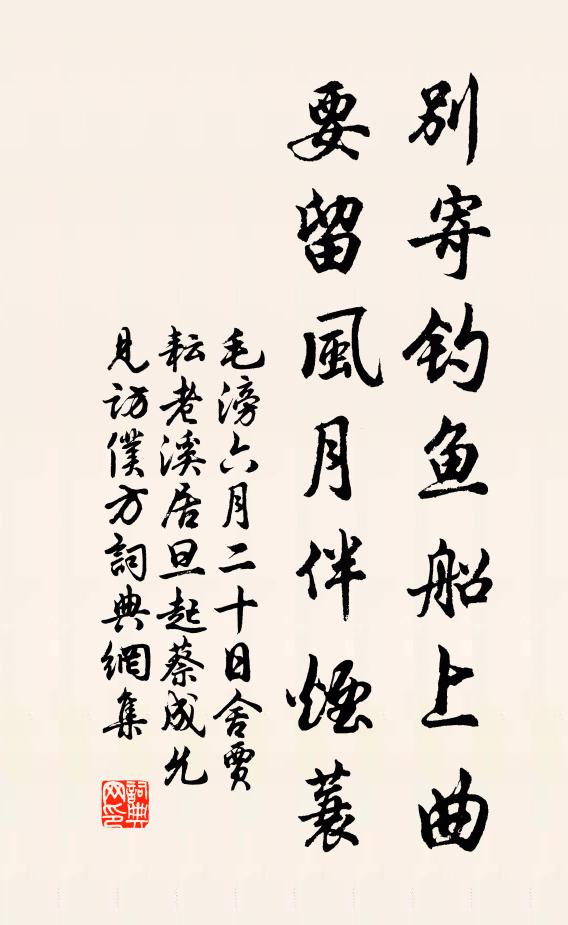 別寄钓鱼船上曲
要留風月伴煙蓑
毛滂六月二十日舍賈
耘老溪居旦起蔡成允
見訪僕方詞典網集
詞典网印